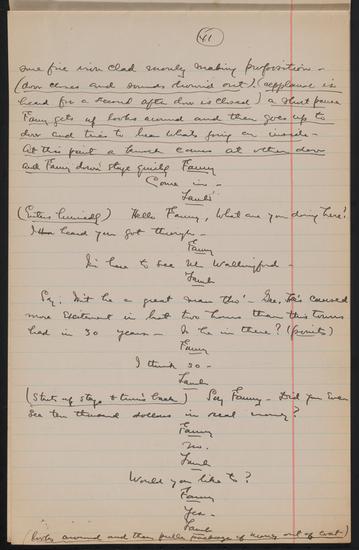 41
sure fire iron clad money making proposition —
(door closes and sounds drowned out) (applause is
heard for a second after door is closed) a short pause
Fanny gets up looks around and then goes up to
door and tries to hear whats going on inside —
At this point a knock comes at other door
and Fanny down stage quickly Fanny
Come in —
Lamb:
(Enters hurriedly) Hello Fanny, What are you doing here!
I heard you got through —
Fanny
I'm here to see Mr Wallingford —
Lamb
Say, Isn't he a great man tho' — Gee, He's caused
more excitement in last two hours than this town's
had in 30 years — Is he in there? (points)
Fanny
I think so —
Lamb
(Starts up stage & turns back) Say Fanny — Did you ever
see ten thousand dollars in real money?
Fanny
No.
Lamb
Would you like to?
Fanny
Yes —
Lamb
(looks around and then pulls package of money out of coat)